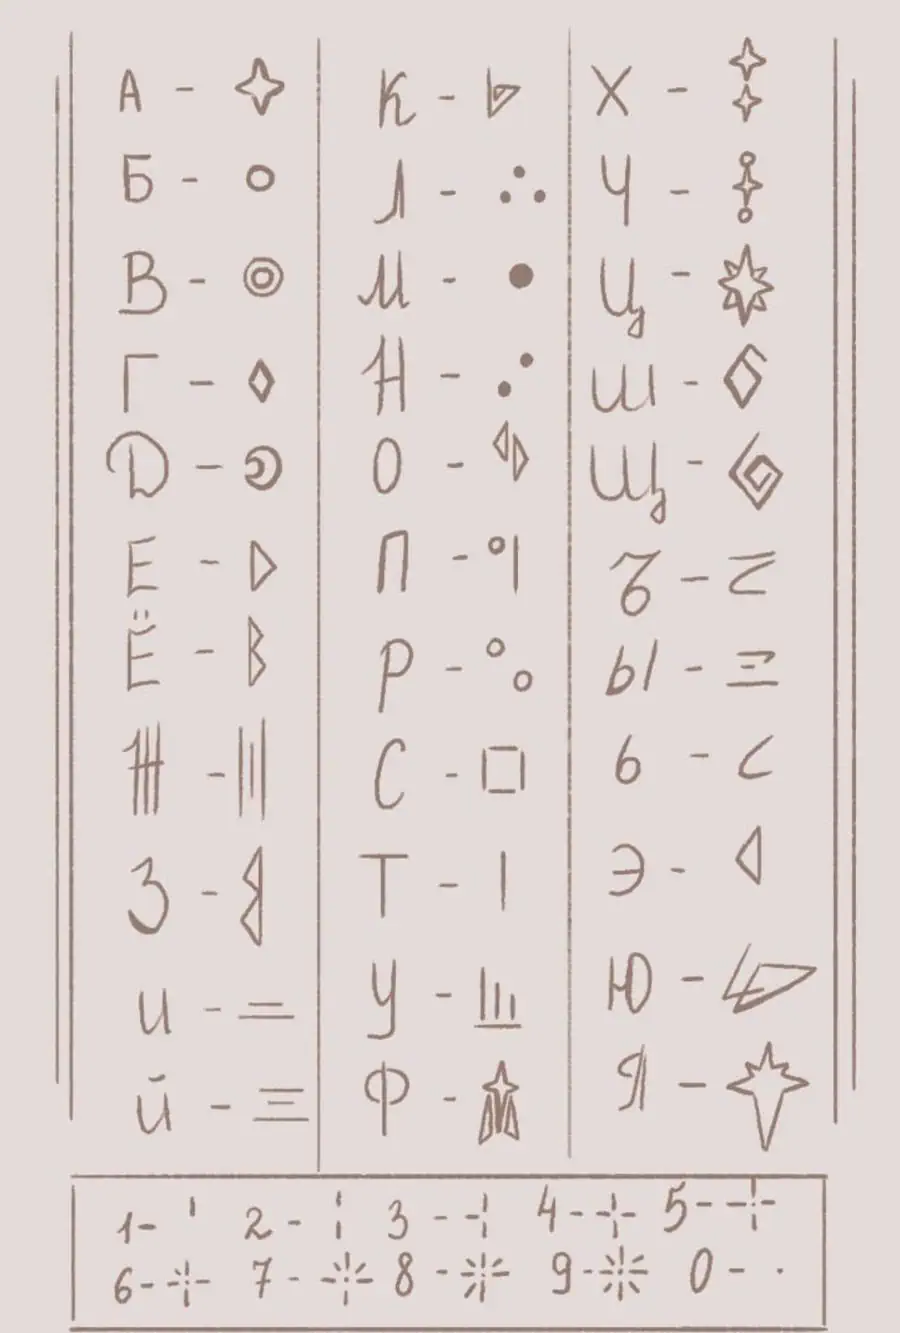 А -
Б -
В -
Г -
Д -
Е -
Ё -
Ж -
З -
И -
Й -
К -
Л -
М -
Н -
О -
П -
Р -
С -
Т -
У -
Ф -
Х -
Ч -
Ц -
Ш -
Щ -
Ъ -
Ы -
Ь -
Э -
Ю -
Я -
1 - 2 - 3 - 4 - 5 -
6 - 7 - 8 - 9 - 0 -